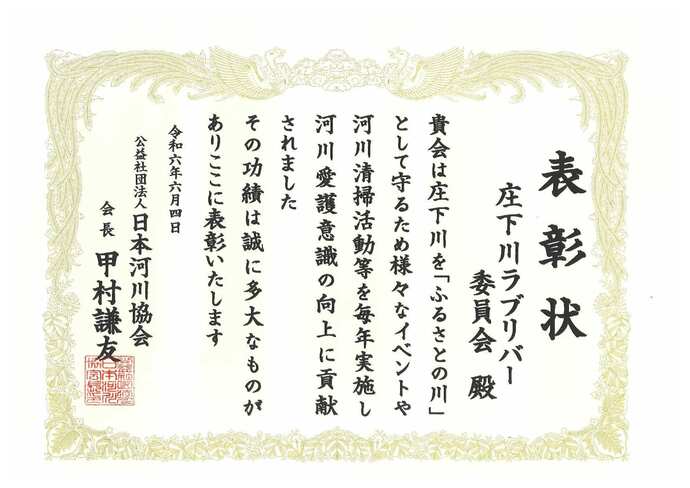 表彰状
庄下川ラブリバー
委員会 殿
貴会は庄下川を「ふるさとの川」
として守るため様々なイベントや
河川清掃活動等を毎年実施し
河川愛護意識の向上に貢献
されました
その功績は誠に多大なものが
ありここに表彰いたします
令和六年六月四日
公益社団法人 日本河川協会
会長 甲村謙友